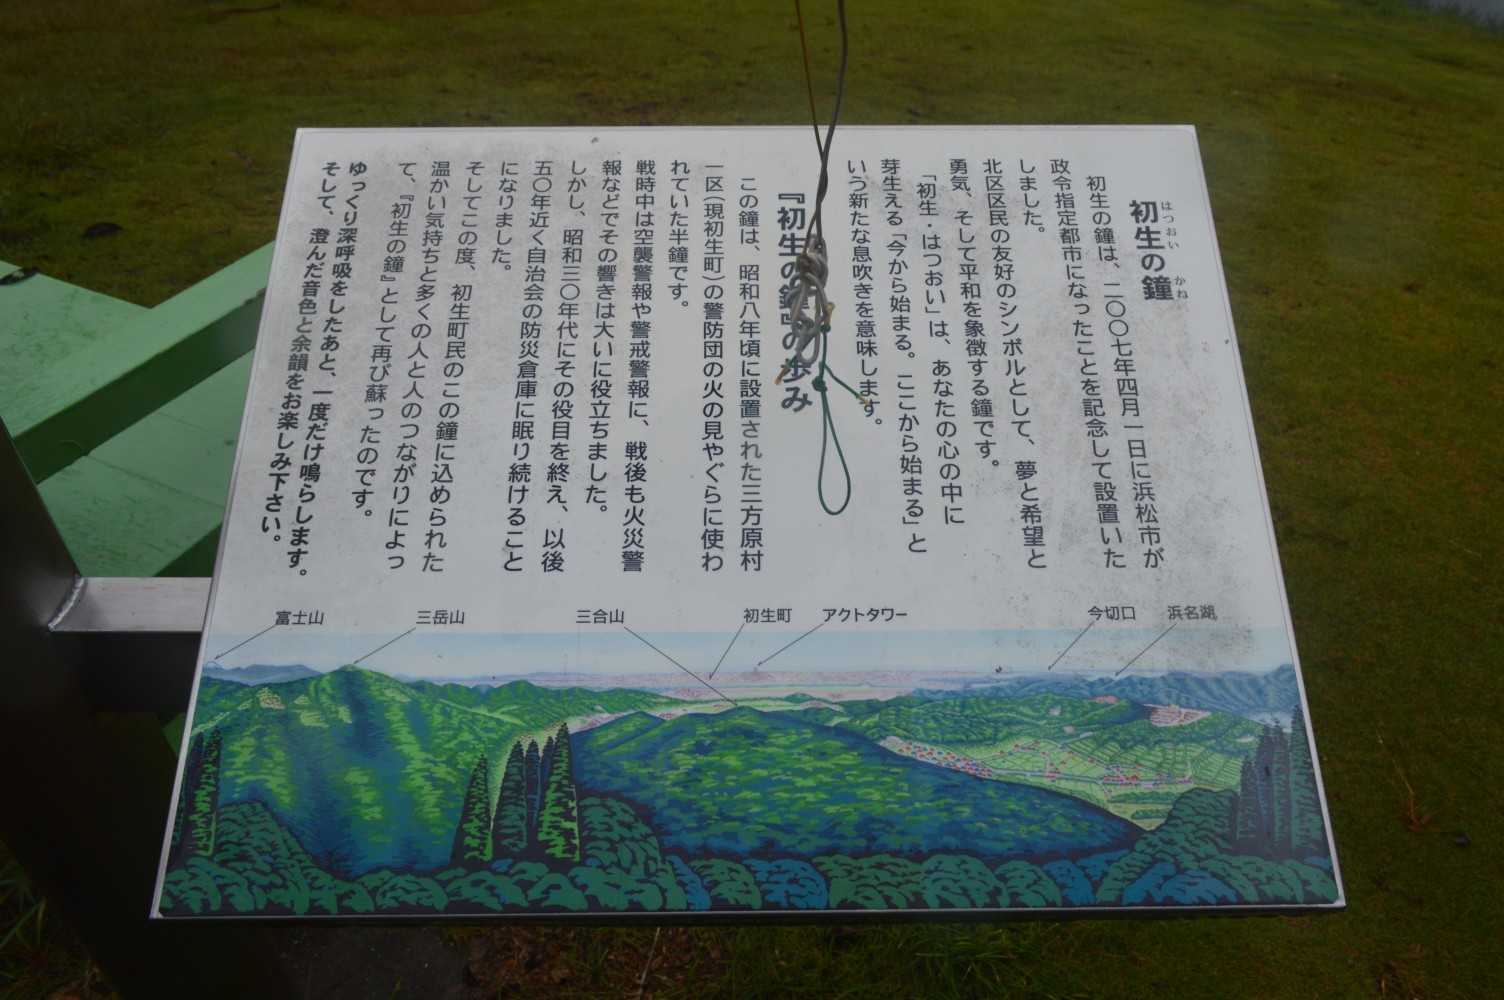 初生の鐘
はつおい かね
初生の鐘は、二〇〇七年四月一日に浜松市が
政令指定都市になったことを記念して設置いた
しました。
北区区民の友好のシンボルとして、夢と希望と
勇気、そして平和を象徴する鐘です。
「初生・はつおい」は、あなたの心の中に
芽生える「今から始まる。ここから始まる」と
いう新たな息吹きを意味します。
『初生の鐘』の歩み
この鐘は、昭和八年頃に設置された三方原村
一区(現初生町)の警防団の火の見やぐらに使わ
れていた半鐘です。
戦時中は空襲警報や警戒警報に、戦後も火災警
報などでその響きは大いに役立ちました。
しかし、昭和三〇年代にその役目を終え、以後
五〇年近く自治会の防災倉庫に眠り続けること
になりました。
そしてこの度、初生町民のこの鐘に込められた
温かい気持ちと多くの人と人のつながりによっ
て、『初生の鐘』として再び蘇ったのです。
ゆっくり深呼吸をしたあと、一度だけ鳴らします。
そして、澄んだ音色と余韻をお楽しみ下さい。
富士山
三岳山
三合山
初生町
アクトタワー
今切口
浜名湖